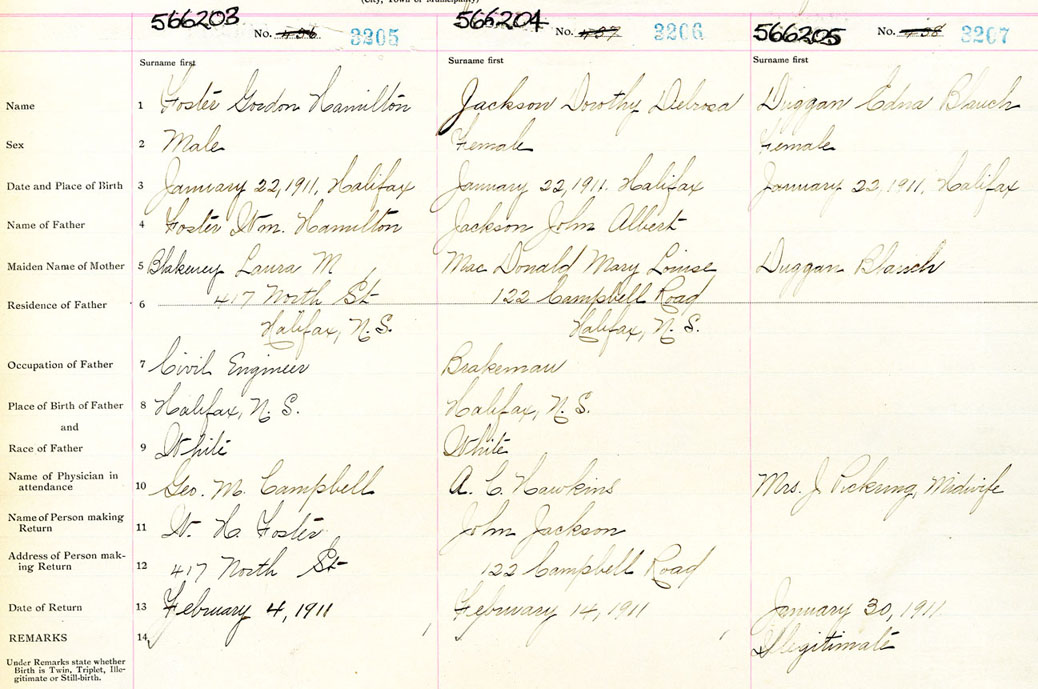 (City, Town or Municipality)
566203 No. 436 3205
566204 No. 437 3206
566205 No. 438 3207
Surname first Surname first Surname first
Name 1 Foster Gordon Hamilton Jackson Dorothy Delrosa Duggan Edna Blanch
Sex 2 Male Female Female
Date and Place of Birth 3 January 22, 1911, Halifax January 22, 1911. Halifax January 22, 1911, Halifax
Name of Father 4 Foster Wm. Hamilton Jackson John Albert
Maiden Name of Mother 5 Blakeney Laura M Mac Donald Mary Louise Duggan Blanch
Residence of Father 6 417 North St 122 Campbell Road
Halifax, N.S. Halifax, N.S.
Occupation of Father 7 Civil Engineer Brakeman
Place of Birth of Father 8 Halifax, N.S. Halifax, N.S.
and
Race of Father 9 White White
Name of Physician in
attendance 10 Geo. M. Campbell A. C. Hawkins Mrs. J Pickring, Midwife
Name of Person making
Return 11 W. H. Foster John Jackson
Address of Person mak-
ing Return 12 417 North St 122 Campbell Road
Date of Return 13 February 4, 1911 February 14, 1911 January 30, 1911
REMARKS 14 Illegitimate
Under Remarks state whether
Birth is Twin, Triplet, Ille-
gitimate or Still-birth.